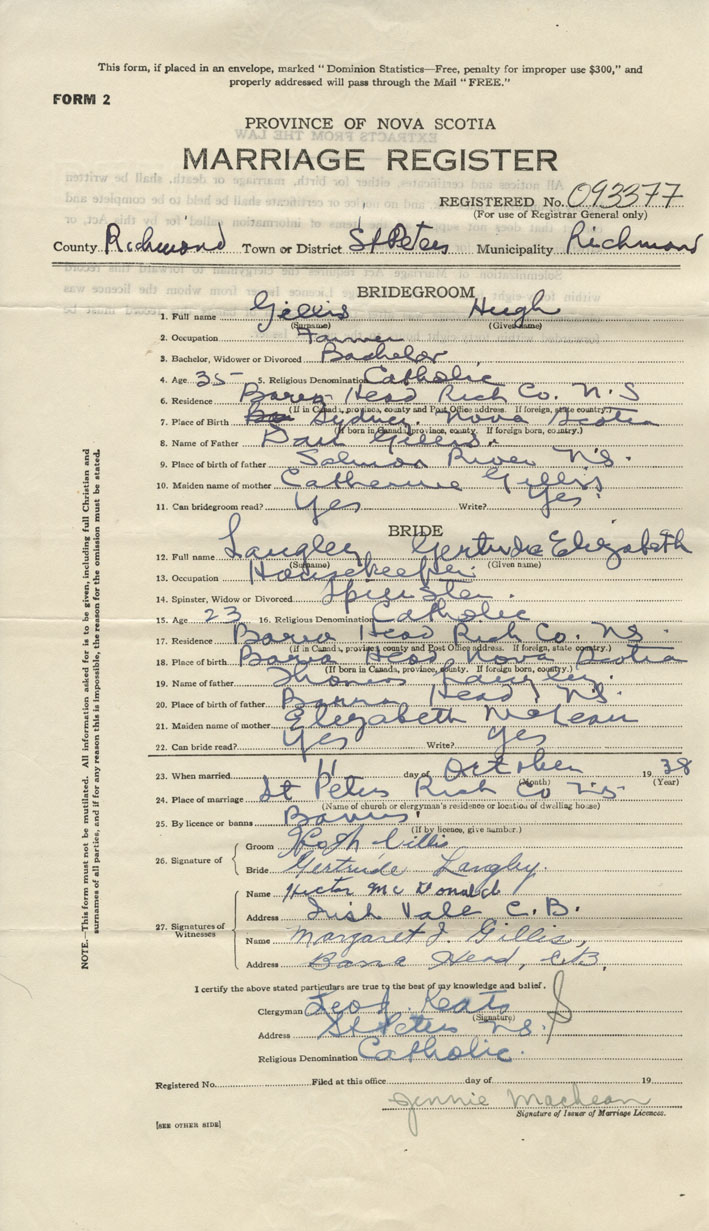 This form, if placed in an envelope, marked "Dominion Statistics—Free, penalty for improper use $300," and
properly addressed will pass through the Mail "FREE."
FORM 2
PROVINCE OF NOVA SCOTIA
MARRIAGE REGISTER
REGISTERED No. 093377
(For use of Registrar General only)
County Richmond Town or District St Peters Municipality Richmond
BRIDEGROOM
1. Full name Gillis Hugh
(Surname) (Given name)
2. Occupation Farmer
3. Bachelor, Widower or Divorced Bachelor
4. Age 35 5. Religious Denomination Catholic
6. Residence Barra Head Rich Co. N.S
(If in Canada, province, county and Post Office address. If foreign, state country.)
7. Place of Birth Sydney. Nova Scotia
(If born in Canada, province, county. If foreign born, country.)
8. Name of Father Dan Gillis.
9. Place of birth of father Salmon River N.S.
10. Maiden name of mother Catherine Gillis
11. Can bridegroom read? Yes Write? Yes
BRIDE
12. Full name Langley Gertrude Elizabeth
(Surname) (Given name)
13. Occupation Housekeeper
14. Spinster, Widow or Divorced Spinster.
15. Age 23 16. Religious Denomination Catholic
17. Residence Barra Head Rich Co. N.S.
(If in Canada, province, county and Post Office address. If foreign, state country.)
18. Place of birth Barra Head Nova Scotia
(If born in Canada, province, county. If foreign born, country.)
19. Name of father Thomas Langley.
20. Place of birth of father Barra Head N.S.
21. Maiden name of mother Elizabeth McLean
22. Can bride read? Yes Write? Yes
23. When married 11 day of October 1938
(Month) (Year)
24. Place of marriage St Peters Rich Co N.S.
(Name of church or clergyman's residence or location of dwelling house)
25. By licence or banns Banns
(If by licence, give number.)
26. Signature of
Groom Gillis
Bride Gertrude Langley.
27. Signatures of Witnesses
Name Hector McDonald
Address Irish Vale C.B.
Name Margaret J. Gillis,
Address Barra Head, C.B.
I certify the above stated particulars are true to the best of my knowledge and belief.
Clergyman Leo J. Keats
(Signature)
Address St Peters N.S.
Religious Denomination Catholic.
Registered No. Filed at this office day of 19
Jennie MacLean
Signature of Issuer of Marriage Licences.
[SEE OTHER SIDE]
NOTE.—This form must not be mutilated. All information asked for is to be given, including full Christian and
surnames of all parties, and if for any reason this is impossible, the reason for the omission must be stated.